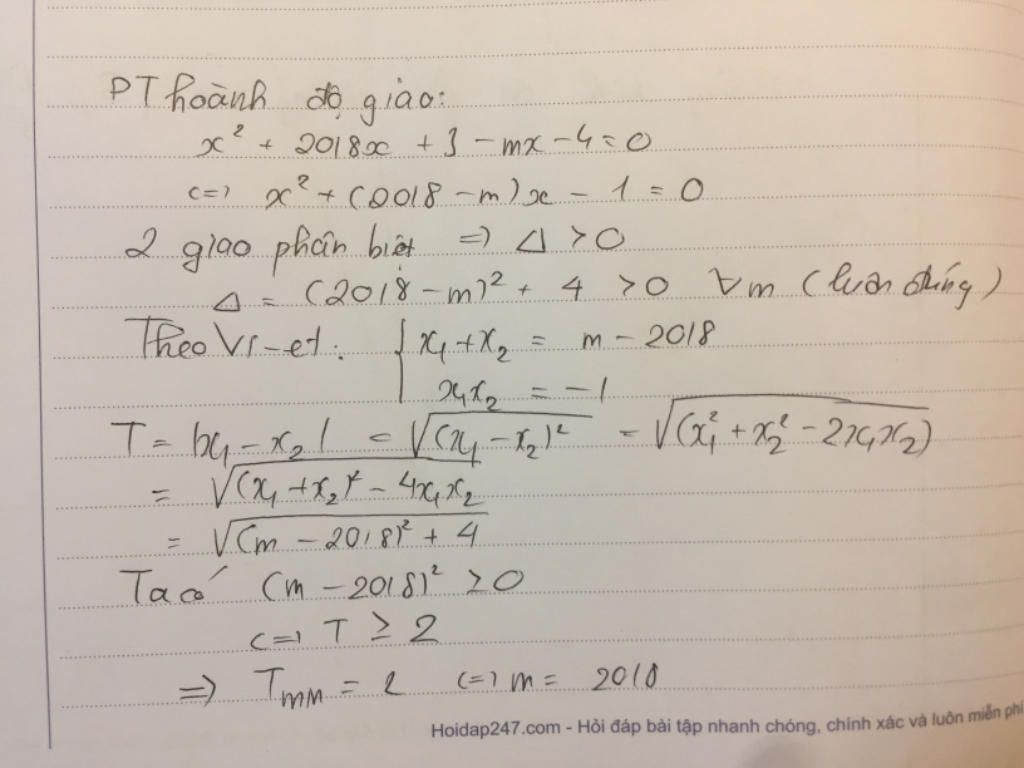 PT hoành độ giao:
x² + 2018x + 3 - mx - 4 = 0
<=> x² + (2018 - m)x - 1 = 0
2 giao phân biệt => Δ > 0
Δ = (2018 - m)² + 4 > 0 ∀m (luôn đúng)
Theo Vi-et: { x₁ + x₂ = m - 2018
x₁x₂ = -1
T = |x₁ - x₂| = √(x₁ - x₂)² = √(x₁² + x₂² - 2x₁x₂)
= √(x₁ + x₂)² - 4x₁x₂
= √(m - 2018)² + 4
Ta có (m - 2018)² ≥ 0
<=> T ≥ 2
=> Tmin = 2 <=> m = 2018
Hoidap247.com - Hỏi đáp bài tập nhanh chóng, chính xác và luôn miễn phí